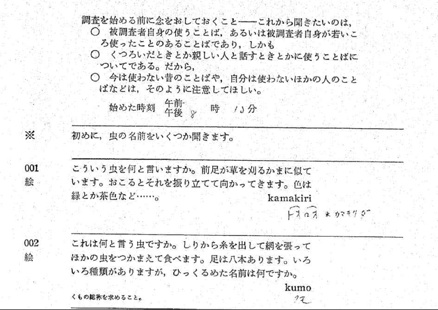 調査を始める前に念をおしておくこと――これから聞きたいのは,
○ 被調査者自身の使うことば, あるいは被調査者自身が若いこ
ろ使ったことのあることばであり, しかも
○ くつろいだときとか親しい人と話すときとかに使うことばに
ついてである。だから,
○ 今は使わない昔のことばや, 自分は使わないほかの人のこと
ばなどは, そのように注意してほしい。
始めた時刻 午前 午後 8 時 13分
※ 初めに, 虫の名前をいくつか聞きます。
001 こういう虫を何と言いますか。前足が草を刈るかまに似て
絵 います。おこるとそれを振り立てて向かってきます。色は
緑とか茶色など……。
kamakiri
002 これは何と言う虫ですか。しりから糸を出して網を張って
絵 ほかの虫をつかまえて食べます。足は八本あります。いろ
いろ種類がありますが, ひっくるめた名前は何ですか。
kumo
くもの総称を求めること。